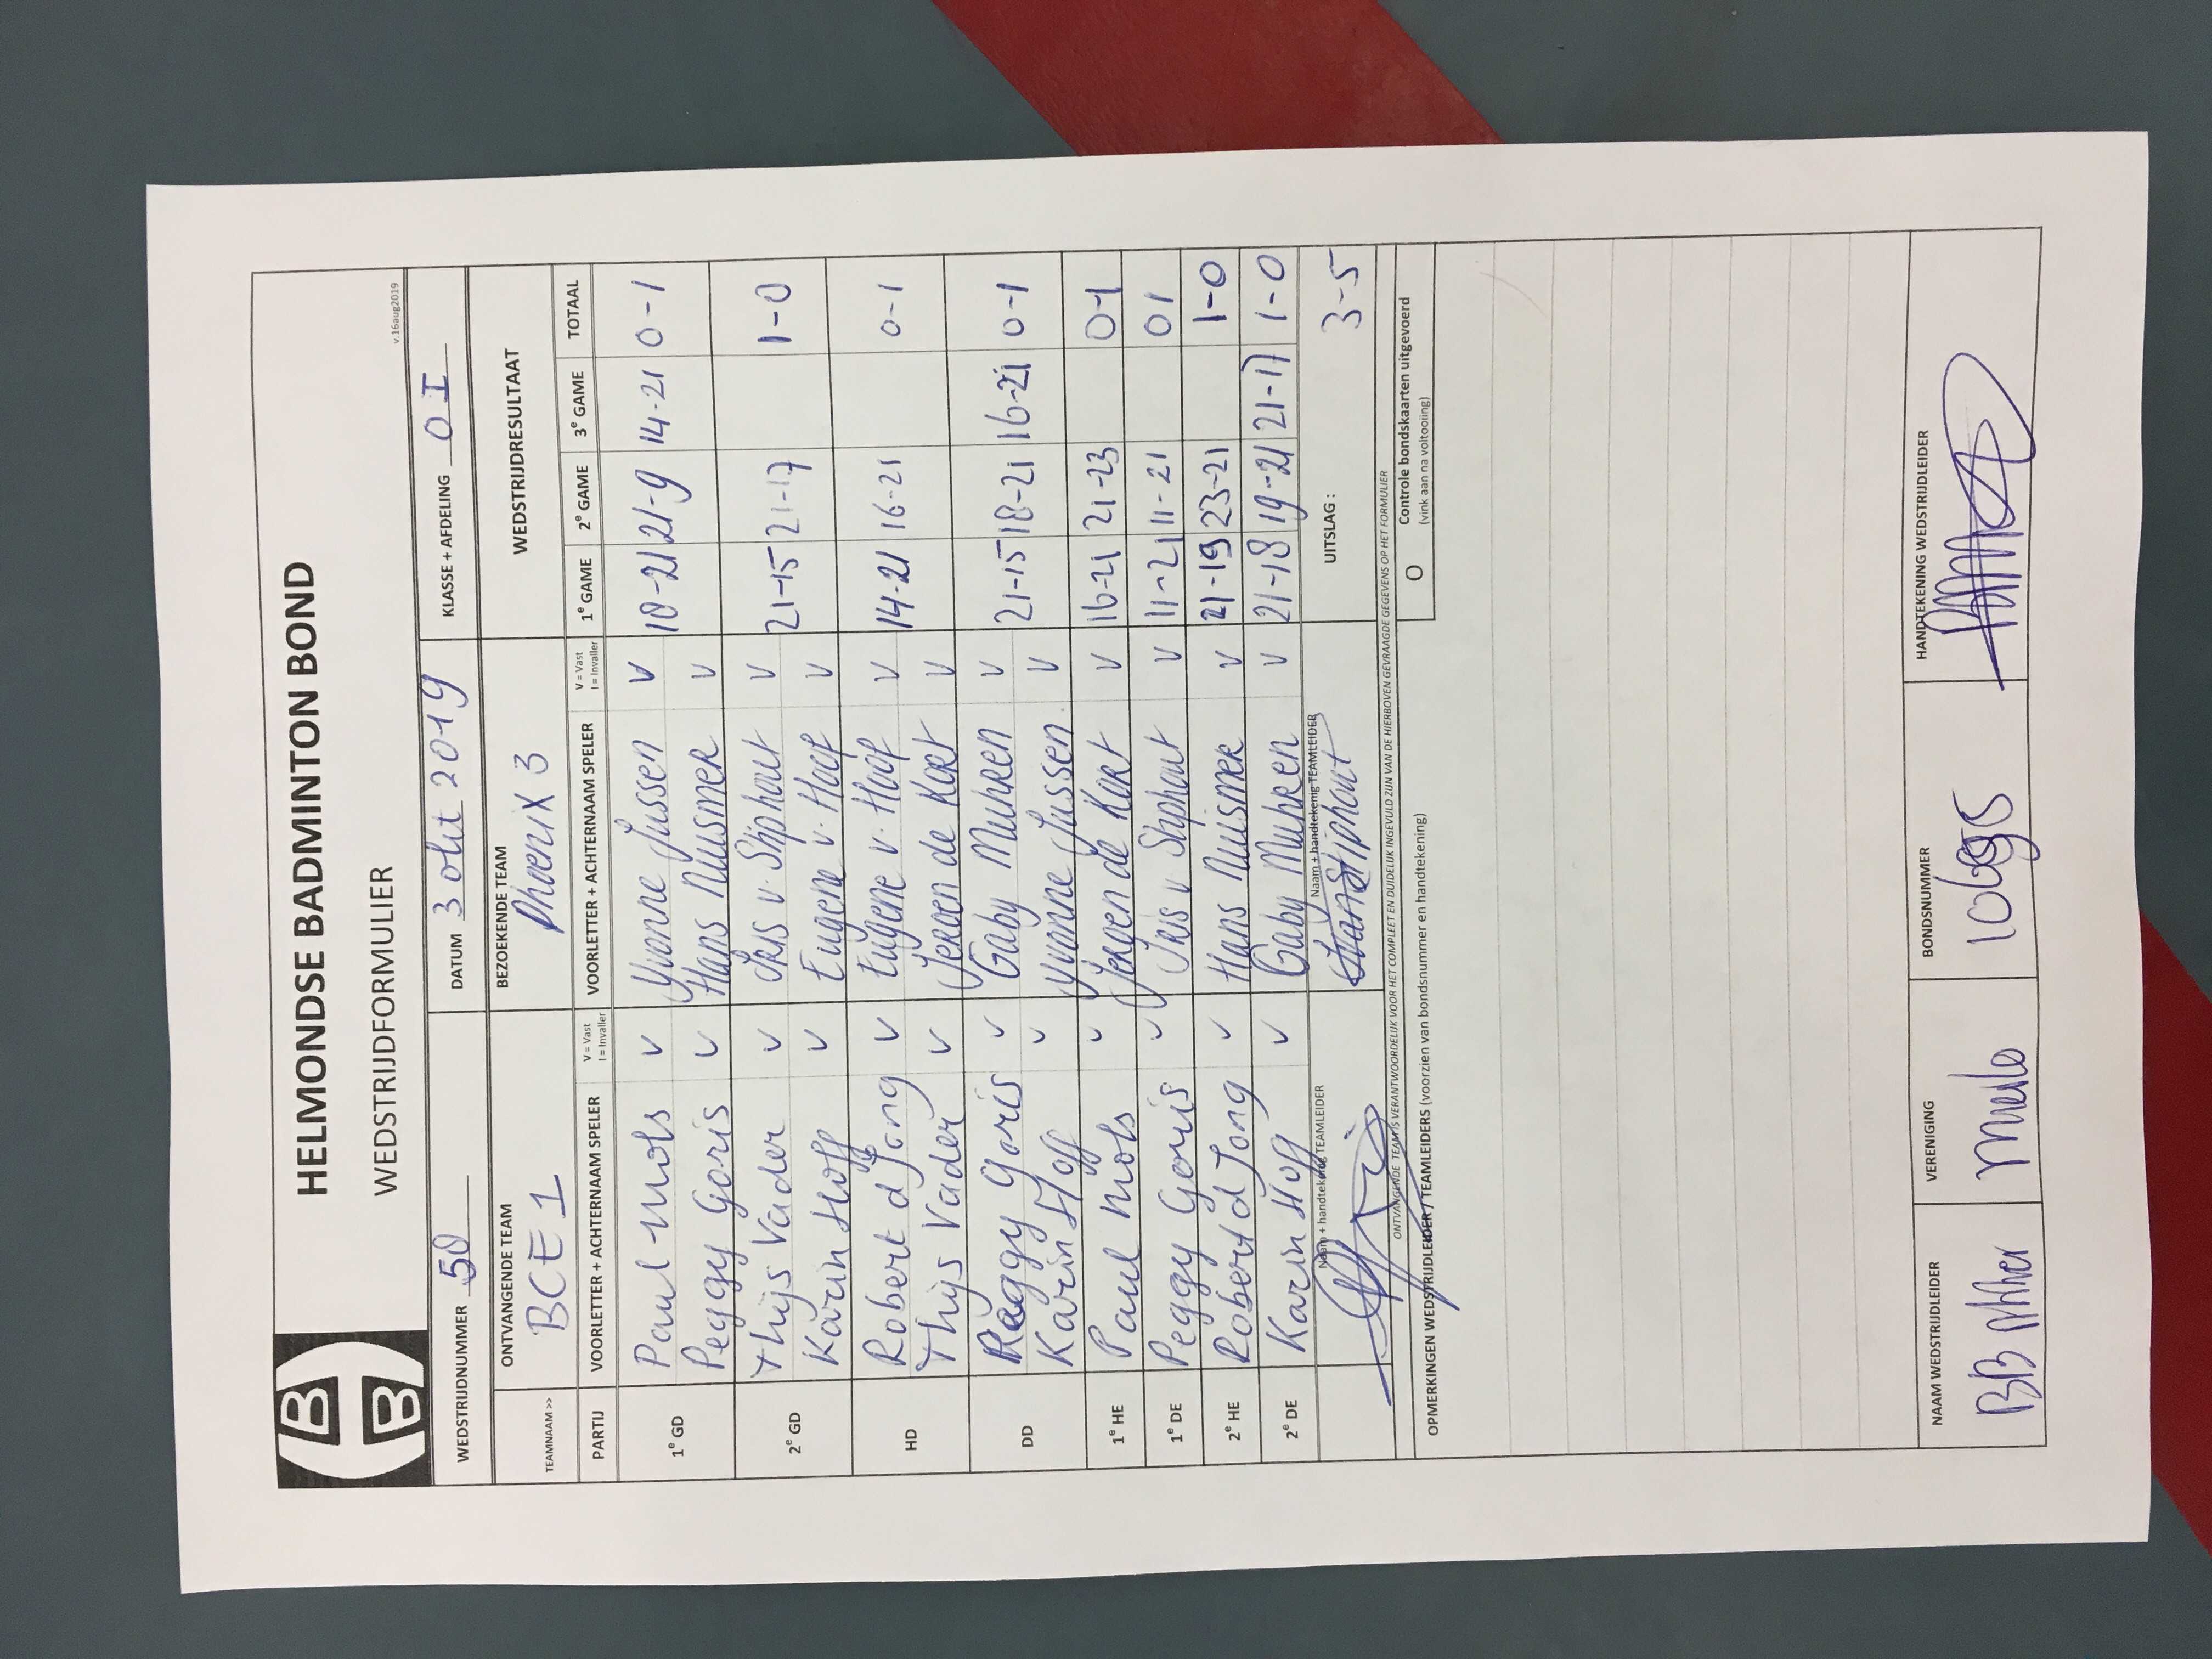 HELMONDSE BADMINTON BOND
WEDSTRIJDFORMULIER
v.16aug2019
WEDSTRIJDNUMMER 50 DATUM 3 okt 2019 KLASSE + AFDELING O I
TEAMNAAM >> ONTVANGENDE TEAM BEZOEKENDE TEAM WEDSTRIJDRESULTAAT
BCE 1 Phoenix 3
PARTIJ VOORLETTER + ACHTERNAAM SPELER V = Vast I = Invaller VOORLETTER + ACHTERNAAM SPELER V = Vast I = Invaller 1e GAME 2e GAME 3e GAME TOTAAL
1e GD Paul Mols V Yvonne Jussen V 18-21 21-9 14-21 0-1
Peggy Goris V Hans Nuismer V
2e GD Thijs Vader V Iris v. Stiphout V 21-15 21-17 1-0
Karin Hoff V Eugene v. Hoof V
HD Robert d Jong V Eugene v. Hoof V 14-21 16-21 0-1
Thijs Vader V Jeroen de Kort V
DD Peggy Goris V Gaby Muhren V 21-15 18-21 16-21 0-1
Karin Hoff V Yvonne Jussen V
1e HE Paul Mols V Jeroen de Kort V 16-21 21-23 0-1
1e DE Peggy Goris V Iris v Stiphout V 11-21 11-21 0 1
2e HE Robert d Jong V Hans Nuismer V 21-19 23-21 1-0
2e DE Karin Hoff V Gaby Muhren V 21-18 19-21 21-17 1-0
Naam + handtekenig TEAMLEIDER Naam + handtekenig TEAMLEIDER UITSLAG : 3-5
Stiphout
ONTVANGENDE TEAM IS VERANTWOORDELIJK VOOR HET COMPLEET EN DUIDELIJK INGEVULD ZIJN VAN DE HIERBOVEN GEVRAAGDE GEGEVENS OP HET FORMULIER
OPMERKINGEN WEDSTRIJDLEIDER / TEAMLEIDERS (voorzien van bondsnummer en handtekening)
O Controle bondskaarten uitgevoerd
(vink aan na voltooiing)
NAAM WEDSTRIJDLEIDER VERENIGING BONDSNUMMER HANDTEKENING WEDSTRIJDLEIDER